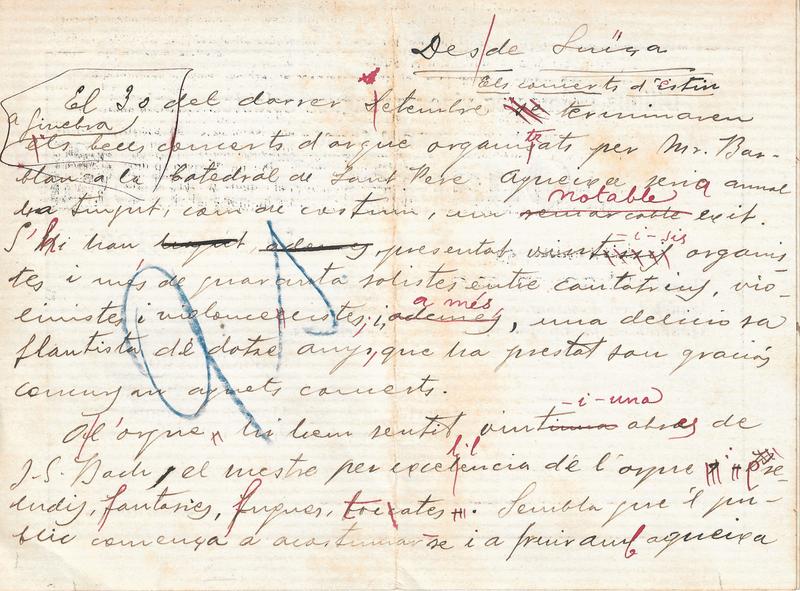 Desde Suïça
Els concerts d'estiu
a Ginebra
El 30 del darrer Setembre terminaren
els bells concerts d'orgue organitzats per Mr. Bar-
blan a la Catedral de Sant Pere. Aqueixa seria anual
ha tingut, com de costum, un remarcable notable exit.
S'hi han tingut, presentat vint-i-sis organis
tes i més de quaranta solistes entre cantatrius, vio-
linistes i violoncelistes, i, ademés, a més, una deliciosa
flautista de dotze anys, que ha prestat son graciós
concurs an aquets concerts.
A l'orgue hi hem sentit vint-i-una obres de
J-S. Bach, el mestre per excel·lencia de l'orgue: pre-
ludis, fantasies, fugues, tocates. Sembla que'l pu-
blic comença a acostumar-se i a fruir amb aqueixa